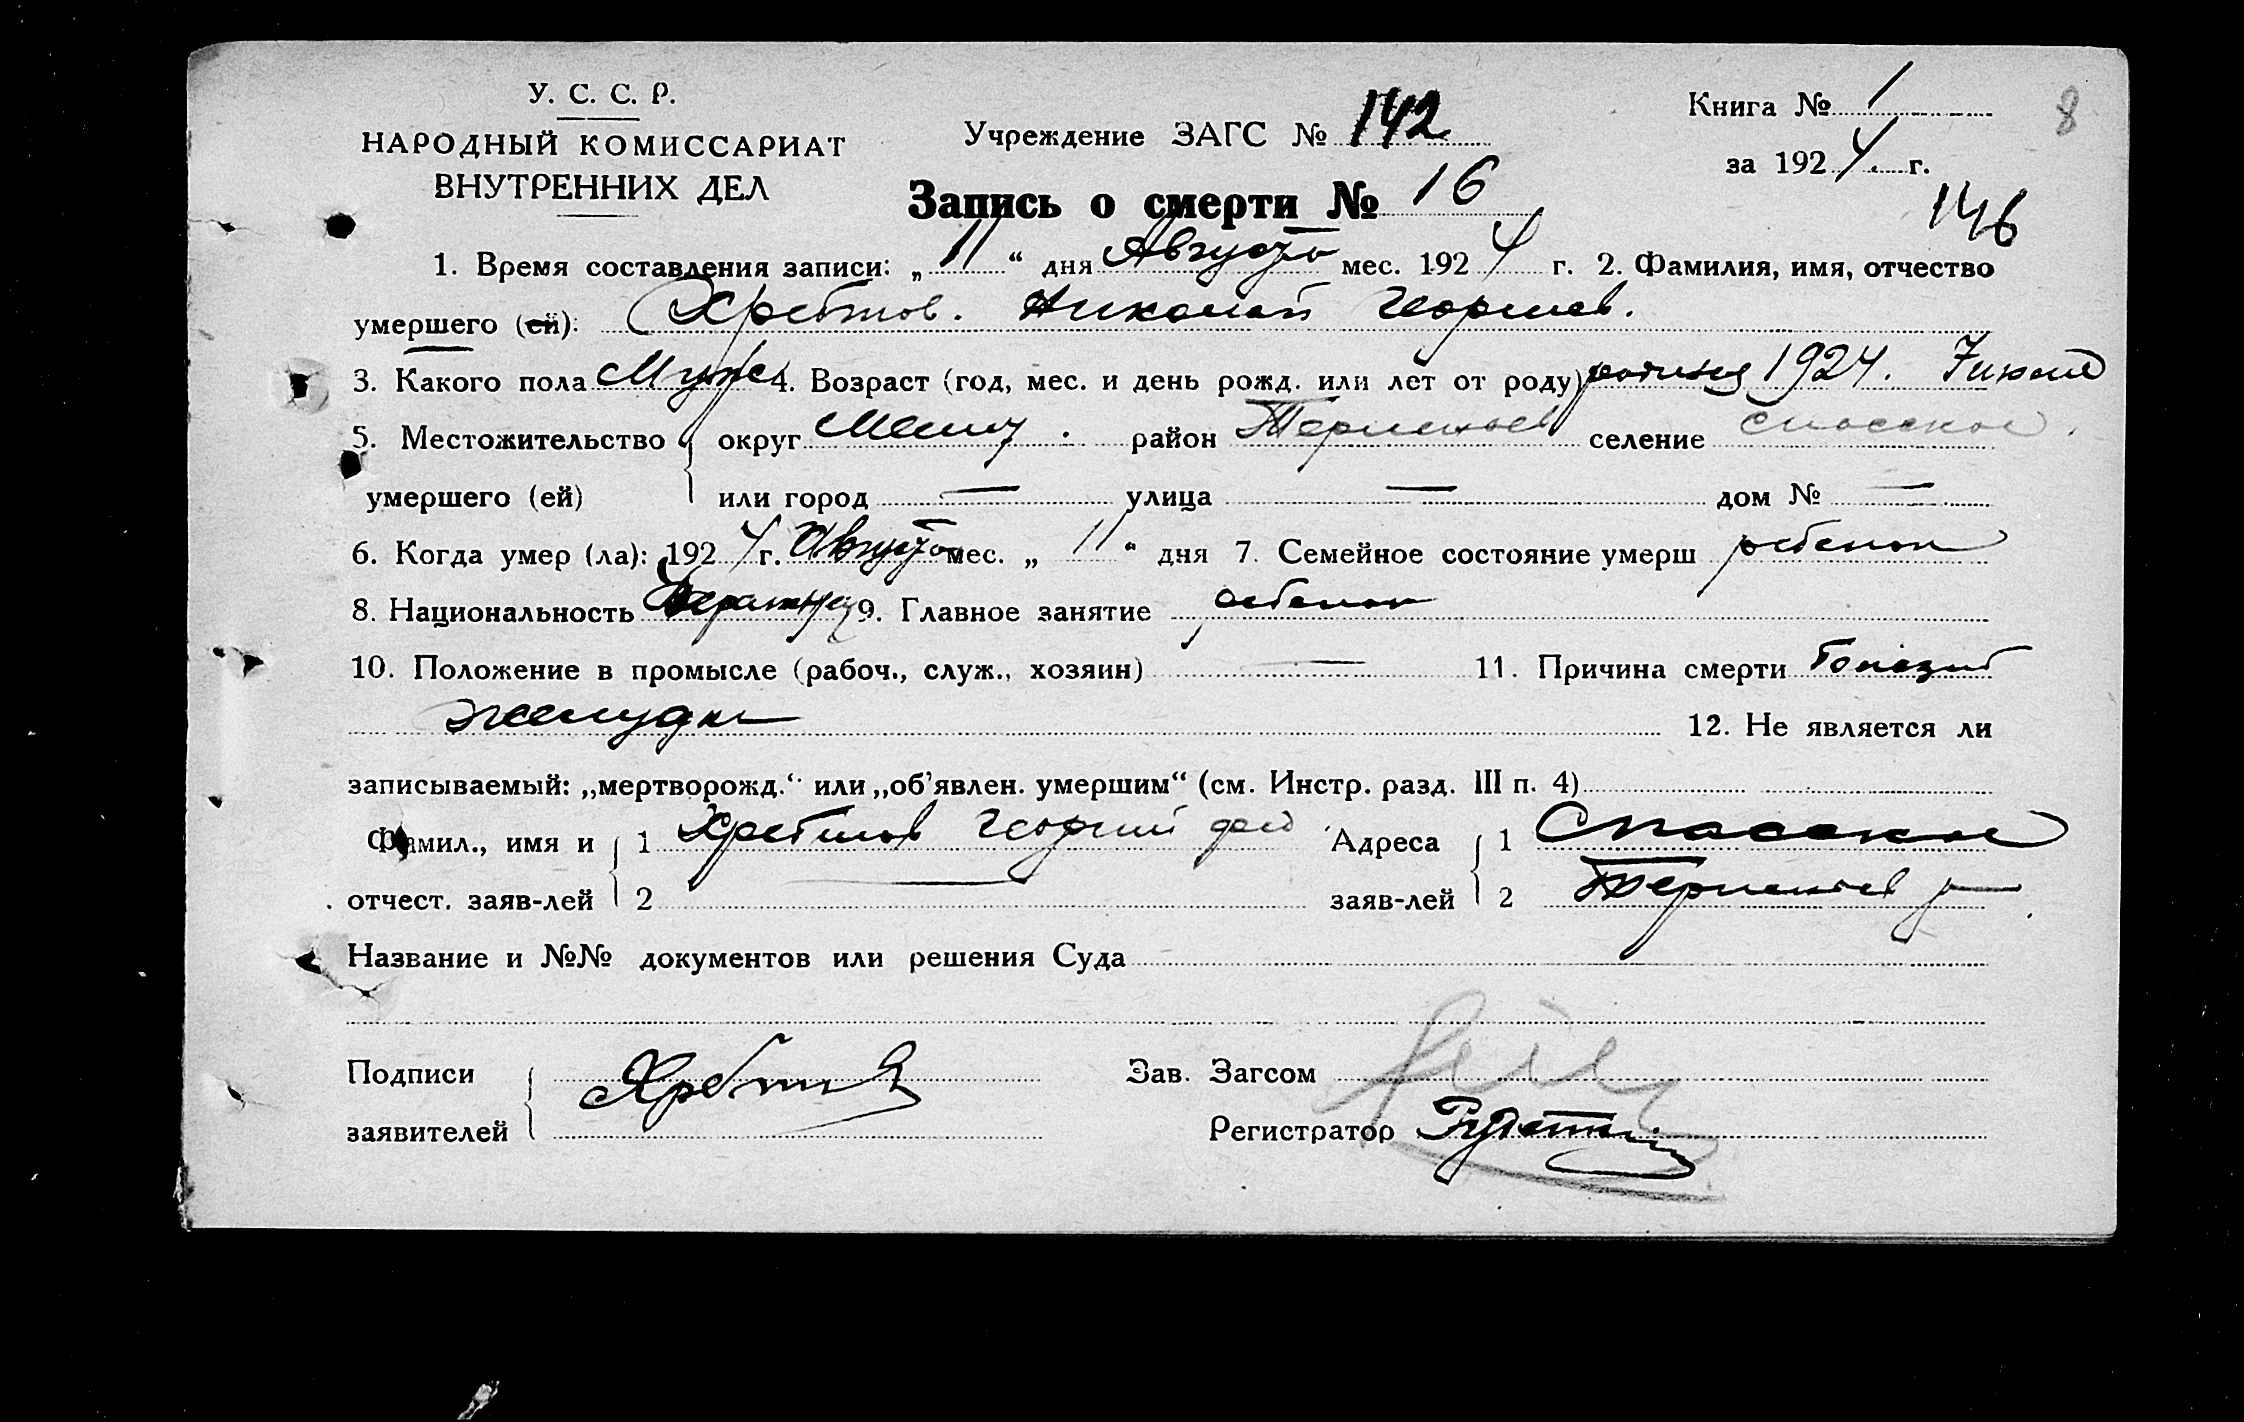 У. С. С. Р.
НАРОДНЫЙ КОМИССАРИАТ
ВНУТРЕННИХ ДЕЛ
Учреждение ЗАГС № 142
Книга № 1
8
за 1924 г.
Запись о смерти № 16
146
1. Время составления записи: „11“ дня Августа мес. 1924 г. 2. Фамилия, имя, отчество
умершего (ей): Хребтов. Николай Георгиев.
3. Какого пола Муж 4. Возраст (год, мес. и день рожд. или лет от роду) родился 1924. 7 июля
5. Местожительство округ район селение Спасское
умершего (ей) или город — улица — дом № —
6. Когда умер (ла): 1924 г. Августа мес. „11“ дня 7. Семейное состояние умерш ребенок
8. Национальность 9. Главное занятие ребенок
10. Положение в промысле (рабоч., служ., хозяин) — 11. Причина смерти
желудка 12. Не является ли
записываемый: „мертворожд.“ или „об'явлен. умершим“ (см. Инстр. разд. III п. 4)
Фамил., имя и 1 Хребтов Георгий Адреса 1 Спасское
отчест. заяв-лей 2 — заяв-лей 2
Название и №№ документов или решения Суда
Подписи Зав. Загсом
заявителей Регистратор